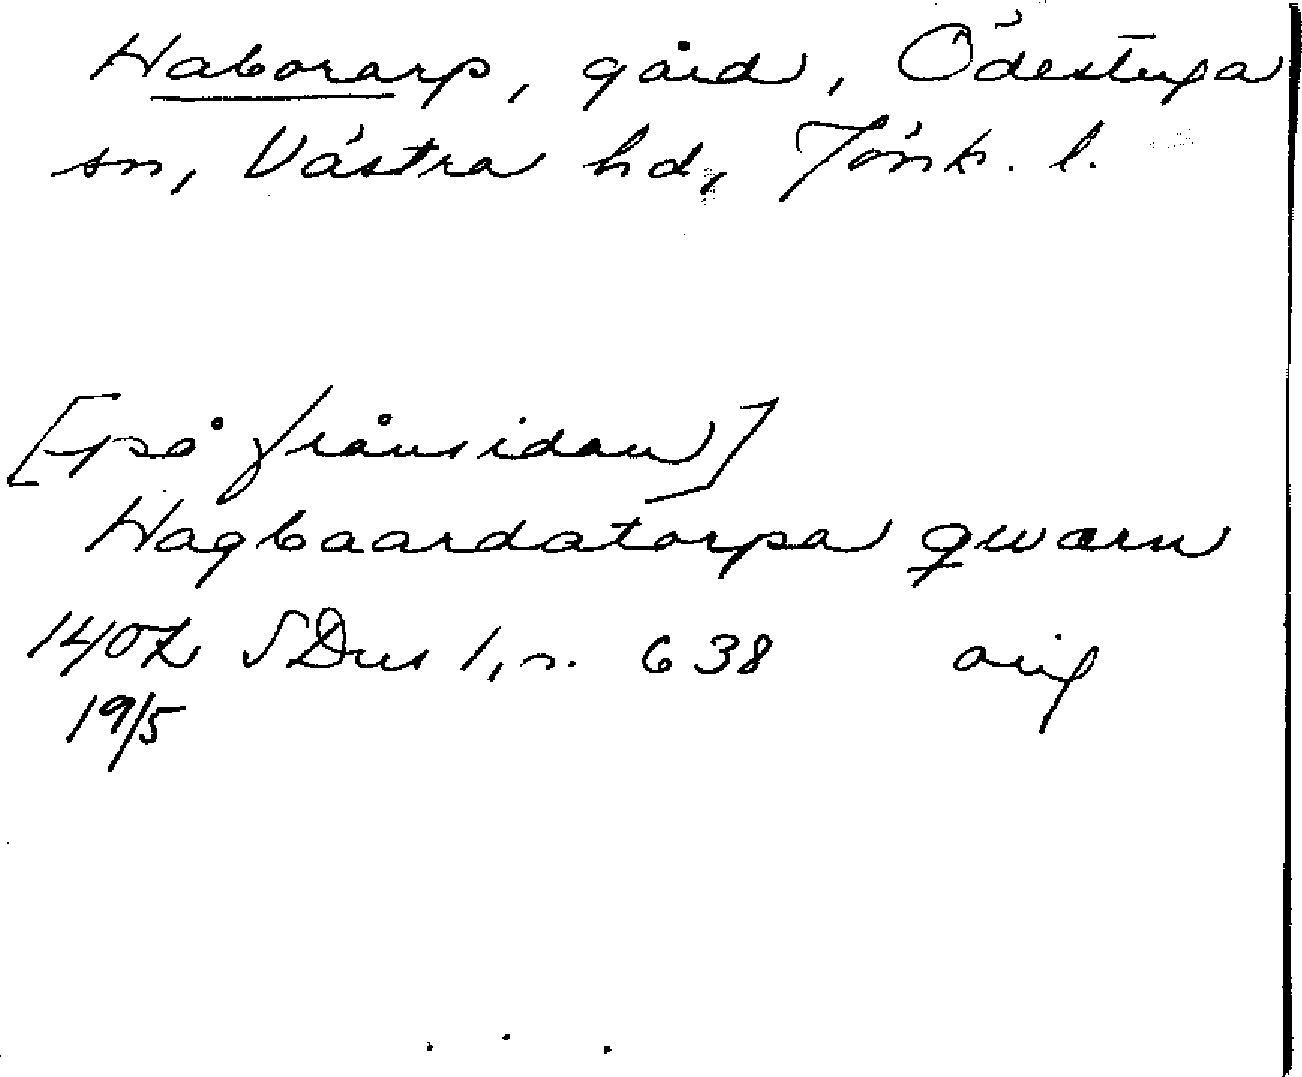 Haborarp, gård, Ödestuga
sn, Västra hd, Jönk. l.
[på frånsidan]
Hagbaardatorpa qwærn
1407 SDns 1, s. 638 orig
19/5